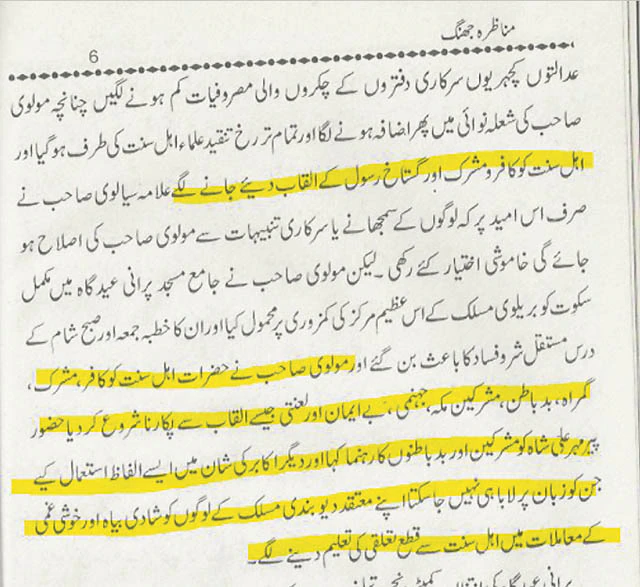 مناظرہ جھنگ
6
عدالتوں کچہریوں سرکاری دفتروں کے چکروں والی مصروفیات کم ہونے لگیں چنانچہ مولوی
صاحب کی شعلہ نوائی میں پھر اضافہ ہونے لگا اور تمام تر رخ تنقید علماء اہل سنت کی طرف ہو گیا اور
اہل سنت کو کافر و مشرک اور گستاخ رسول کے القاب دیئے جانے لگے علامہ سیالوی صاحب نے
صرف اس امید پر کہ لوگوں کے سمجھانے یا سرکاری تنبیہات سے مولوی صاحب کی اصلاح ہو
جائے گی خاموشی اختیار کئے رکھی ۔ لیکن مولوی صاحب نے جامع مسجد پرانی عید گاہ میں مکمل
سکوت کو بریلوی مسلک کے اس عظیم مرکز کی کمزوری پر محمول کیا اور ان کا خطبہ جمعہ اور صبح شام کے
درس مستقل شر و فساد کا باعث بن گئے اور مولوی صاحب نے حضرات اہل سنت کو کافر، مشرک،
گمراہ، بد باطن، مشرکین مکہ، جہنمی، بے ایمان اور لعنتی جیسے القاب سے پکارنا شروع کر دیا حضور
پیر مہر علی شاہ کو مشرکین اور بد باطنوں کا رہنما کہا اور دیگر اکابر کی شان میں ایسے الفاظ استعمال کیے
جن کو زبان پر لایا ہی نہیں جا سکتا اپنے معتقد دیوبندی مسلک کے لوگوں کو شادی بیاہ اور خوشی غمی
کے معاملات میں اہل سنت سے قطع تعلقی کی تعلیم دینے لگے ۔